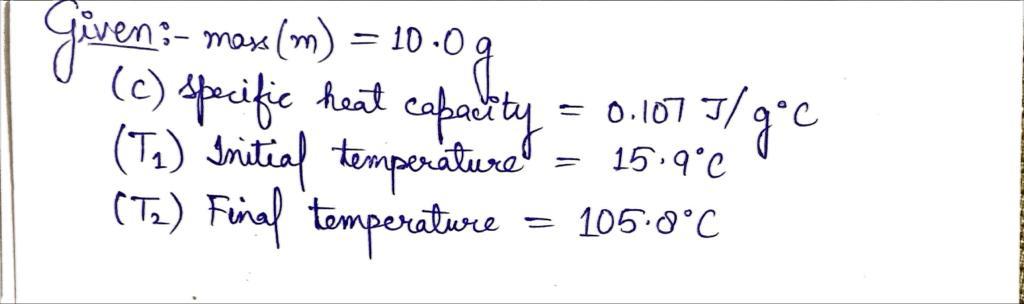 Given:- mass (m) = 10.0 g
(c) specific heat capacity = 0.107 J/g°C
(T₁) Initial temperature = 15.9°C
(T₂) Final temperature = 105.8°C